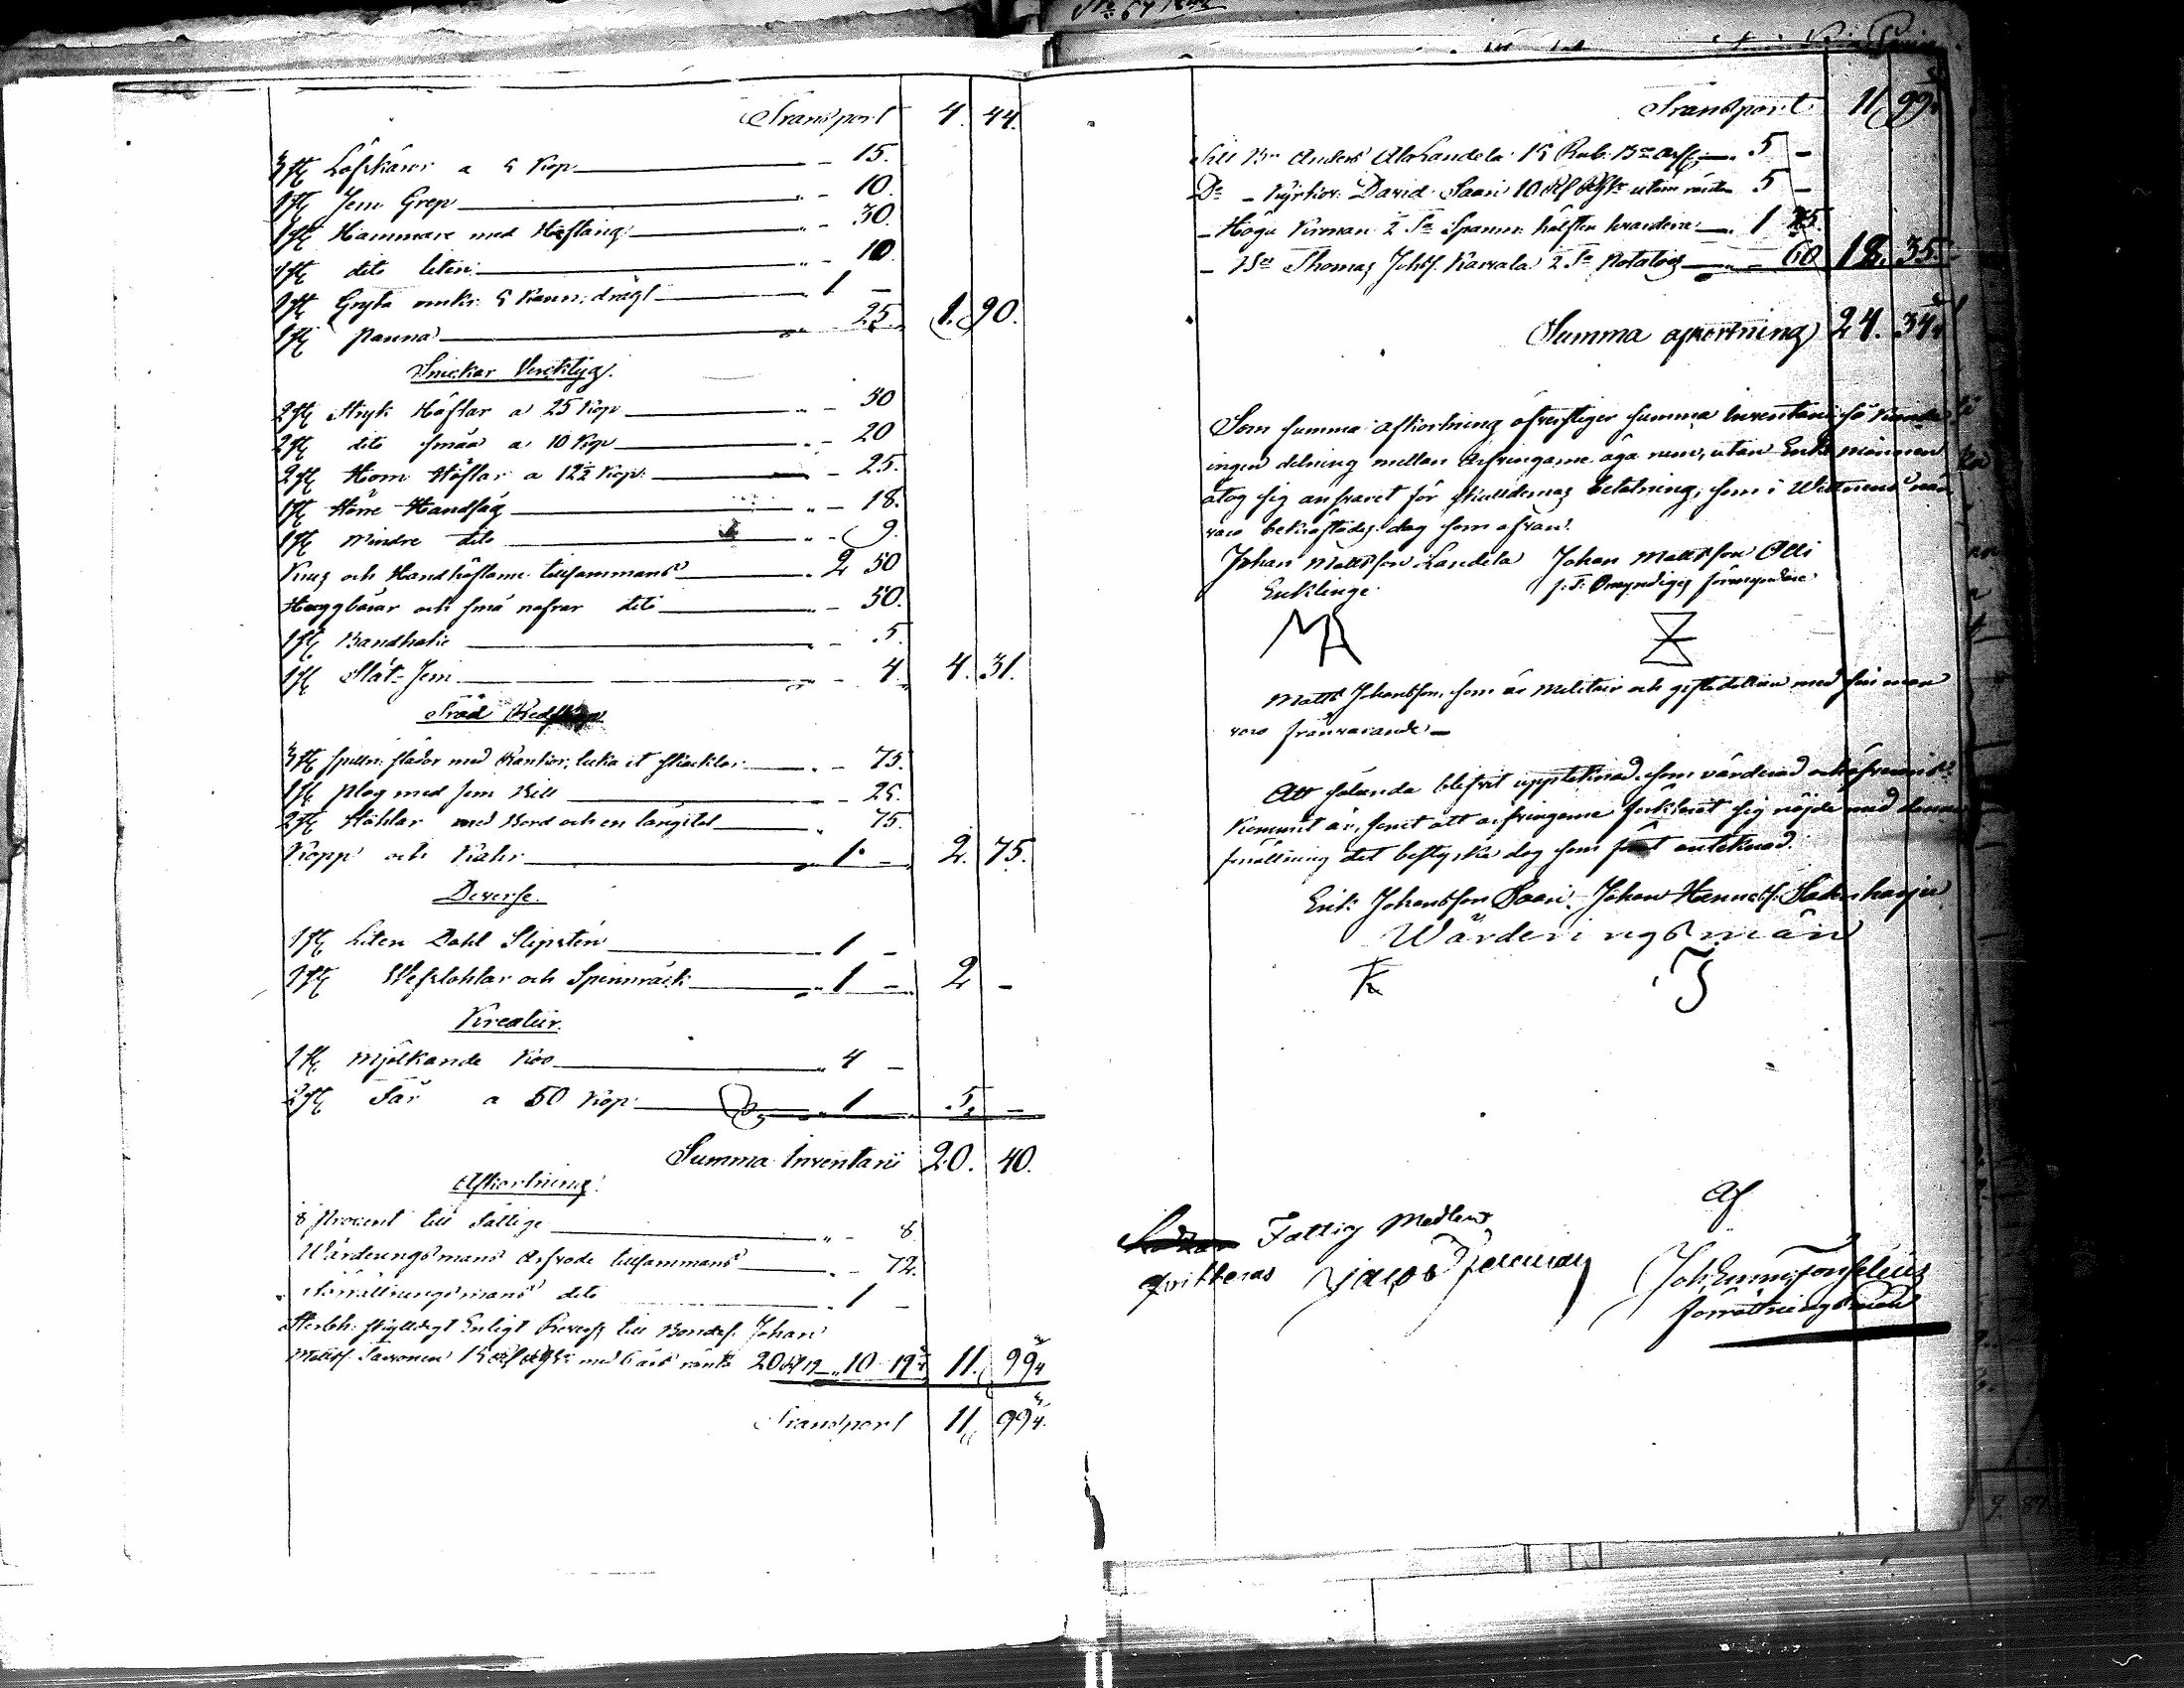 Transport 4. 44.
3 st Löfskäror a 5 Kop — 15.
1 st Jern Grep — 10
1 st Hammare med Höftäng — 30
1 st dito liten — 10
1 st Gryta omkr: 5 Kann: drägt 1 —
1 st panna 25 1. 90.
Snickar Verktyg.
2 st Stryk Höflar a 25 Kop — 50
2 st dito små a 10 Kop — 20
2 st Horn Höflar a 12½ Kop: — 25.
1 st Större Handsåg — 18.
1 st Mindre dito — 9.
Krus och Handhöflarne tillsammans 2 50
Huggbårar och små nafrar dito — 50.
1 st Bandhake — 5.
1 st Slät-Jern — 4. 4. 31.
Träd Redskap
3 st slädor med Kankor, luka et skacklar — 75.
1 st plog med Jern Bill — 25.
2 st Stöhlar med Bord och en långstol 75.
Kopp och Kahr 1. — 2. 75.
Diverse.
1 st Liten Dahl Slipsten 1 —
1 st Wefstohlar och Spinnrack 1 — 2 —
Kreatur.
1 st Mjölkande Koo 4 —
2 st Får a 50 Kop: 1 5. —
Summa Inventarii 20. 40.
Afkortning.
procent till Fattige — 8
Wärderingsmans Arfvode tillsammans — 72.
Förrättningsmans dito 1 —
Sterbh: skyldigt Enligt Revers till Bondes. Johan
Matts. med 6 års ränta 10 19¾ 11. 99¾
Transport 11. 99¾.
Transport 11. 99¾
Till Bn Anders Alahandela 15 Rub. Bco Ass: 5 —
Do — David Saari 10 utom räntan 5 —
— Höga Kronan 2 Ta Spanm: hälften hvardera 1 75.
— Thomas Johs. Karvala 2 Ta Potatoes — 60 12. 35.
Summa afkortning 24. 34¾
Som summa afkortning öfverstiger summa Inventarii så kunde
ingen delning mellan Arfvingarne äga rum, utan Enkemannen
åtog sig ansvaret för skuldernas betalning, som i Wittnens när-
varo bekräftades dag som ofvan.
Johan Mattsson Landela Johan Mattsson Olli
Enklinge f. d. Omyndiges förmyndare
MA
Matts Johansson, som är Militair och giftedottran med sin man
voro frånvarande —
Att sålunda blifvit upptecknad, som värderad och öfverens-
kommit är, samt att arfvingarne förklarat sig nöjde med denna
förrättning det bestyrka dag som förut antecknad.
Erik Johansson Saari. Johan Hermss. Sakarharju
Wärderingsmän
K J
Fattig Medlens
qvitteras Jacob
Af
förrättningsman